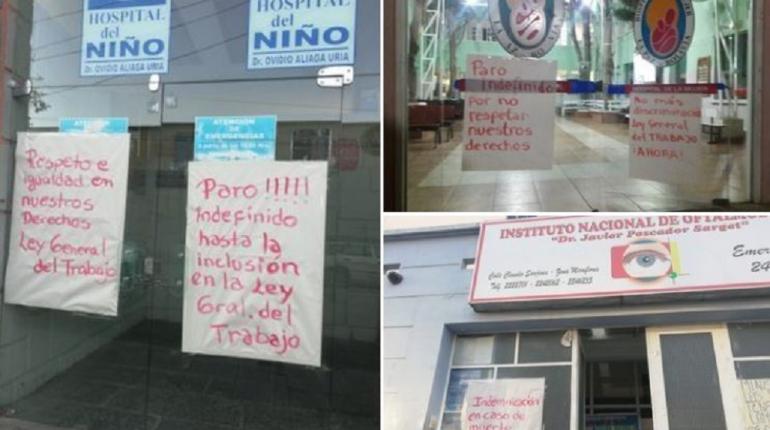 HOSPITAL
del
NIÑO
DR. OVIDIO ALIAGA URIA
HOSPITAL
del
NIÑO
Dr. OVIDIO ALIAGA URIA
ATENCIÓN
DE
EMERGENCIAS
Respeto e
igualdad en
nuestros
Derechos
Ley General
del Trabajo
Paro !!!!!
Indefinido
hasta la
inclusión
en la Ley
Gral. del
Trabajo
LA PAZ BOLIVIA
HOSPITAL DE LA MUJER
Paro
Indefinido
por no
respetar
nuestros
derechos
No más
discriminació
Ley General
del TRABAJO
¡AHORA!
INSTITUTO NACIONAL DE OFTALMO
"Dr. Javier Pescador Sarget"
Emer
24
Calle Claudio Sanjinez - Zona Miraflores
Indemnización
en caso de
muerte